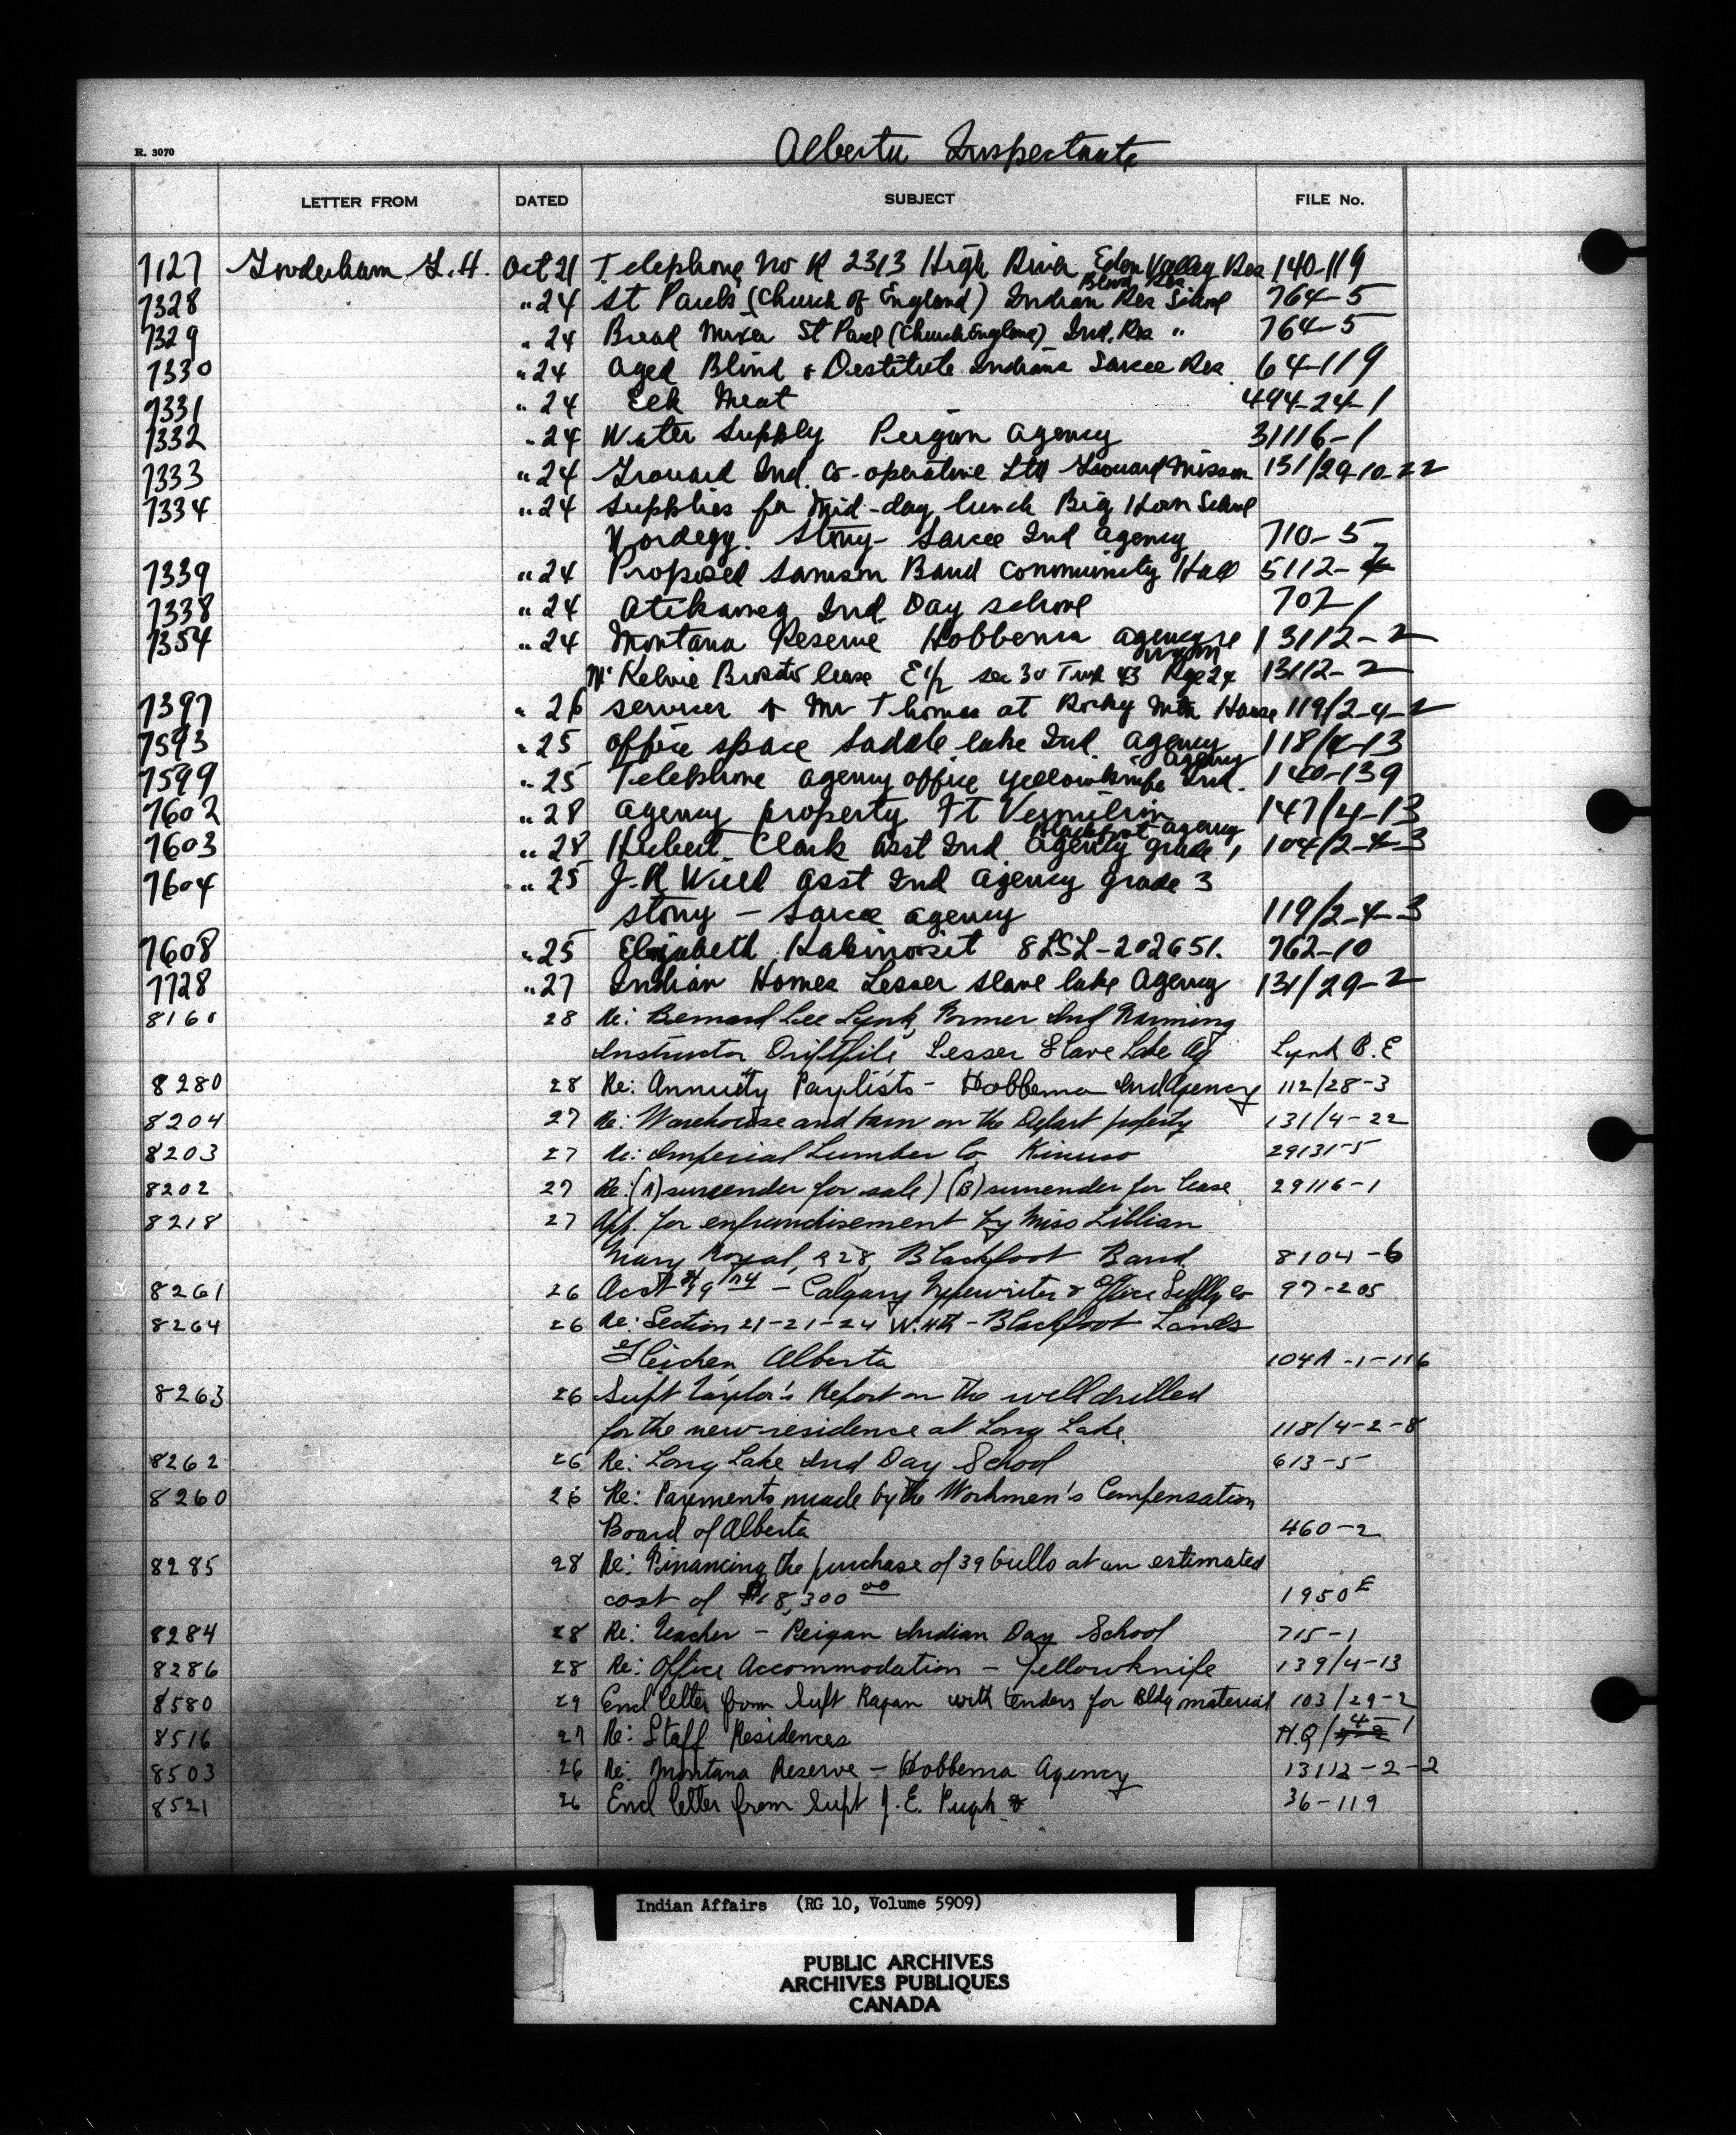 Alberta Inspectorate
R. 3070
LETTER FROM DATED SUBJECT FILE No.
7127 Gooderham G.H. Oct 21 Telephone No R 2313 High River Eden Valley Res 140-119
Blood Res
7328 " 24 St Pauls (Church of England) Indian Res School 764-5
7329 " 24 Bread Mixer St Paul (Church England) Ind. Res " 764-5
7330 " 24 Aged Blind & Destitute Indians Sarcee Res 64-119
7331 " 24 Elk Meat 494-24-1
7332 " 24 Water Supply Peigan Agency 31116-1
7333 " 24 Grouard Ind. Co-operative Ltd Grouard Mission 131/29-10-22
7334 " 24 Supplies for Mid-day lunch Big Horn School
Nordegg. Stony - Sarcee Ind Agency 710-5
7339 " 24 Proposed Samson Band Community Hall 5112-
7338 " 24 Atikameg Ind. Day School 707-1
7354 " 24 Montana Reserve Hobbema Agency re 13112-2
McKelvie Bros lease E½ sec 30 Twp 43 Rge 24 13112-2
7397 " 26 services of Mr Thomas at Rocky Mtn House 119/2-4-2
7593 " 25 office space Saddle Lake Ind. Agency 118/4-13
Agency
7599 " 25 Telephone agency office Yellowknife Ind. 140-139
7602 " 28 Agency property Ft Vermilion 147/4-13
Blackfoot Agency
7603 " 28 Hubert Clark Asst Ind. Agency grade 1 104/2-4-3
7604 " 25 J.R Wild Asst Ind Agency grade 3
Stony - Sarcee Agency 119/2-4-3
7608 " 25 Elizabeth 8LSL-202651. 762-10
7728 " 27 Indian Homes Lesser Slave Lake Agency 131/29-2
8160 28 Re: Bernard Lee Lynk, Former Ind Farming
Instructor Driftpile, Lesser Slave Lake Ag Lynk B. E
8280 28 Re: Annuity Paylists - Hobbema Ind Agency 112/28-3
8204 27 Re: Warehouse and barn on the property 131/4-22
8203 27 Re: Imperial Lumber Co. Kinuso 29131-5
8202 27 Re: (A) surrender for sale) (B) surrender for lease 29116-1
8218 27 App. for enfranchisement by Miss Lillian
Mary Royal, #28, Blackfoot Band 8104-6
8261 26 Acct - Calgary Typewriter & Office Supply Co 97-205
8264 26 Re: Section 21-21-24 W. 4th - Blackfoot Lands
Gleichen, Alberta 104A-1-116
8263 26 Supt Taylor's Report on the well drilled
for the new residence at Long Lake 118/4-2-8
8262 26 Re: Long Lake Ind Day School 613-5
8260 26 Re: Payments made by the Workmen's Compensation
Board of Alberta 460-2
8285 28 Re: Financing the purchase of 39 bulls at an estimated
cost of $18,300 00 1950 E
8284 28 Re: Teacher - Peigan Indian Day School 715-1
8286 28 Re: Office Accommodation - Yellowknife 139/4-13
8580 29 Encl letter from Supt Ragan with tenders for Bldg material 103/29-2
8516 27 Re: Staff Residences H.Q/4-1
8503 26 Re: Montana Reserve - Hobbema Agency 13112-2-2
8521 26 Encl letter from Supt J. E. Pugh 36-119
Indian Affairs (RG 10, Volume 5909)
PUBLIC ARCHIVES
ARCHIVES PUBLIQUES
CANADA